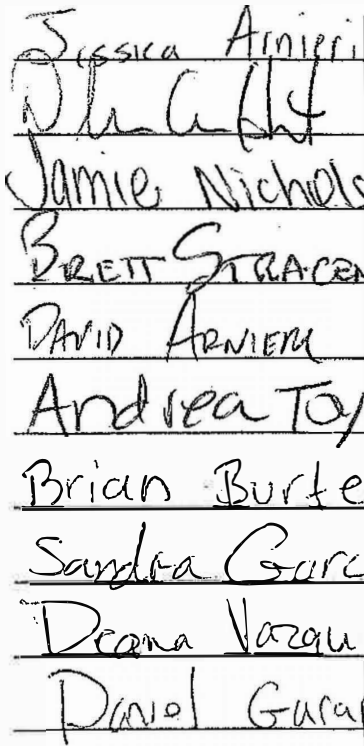 Jessica Arnieri
Jamie Nichols
BRETT STRACEN
DAVID ARNIERI
Andrea Toy
Brian Burte
Sandra Garc
Deana Vazqu
Daniel Garar